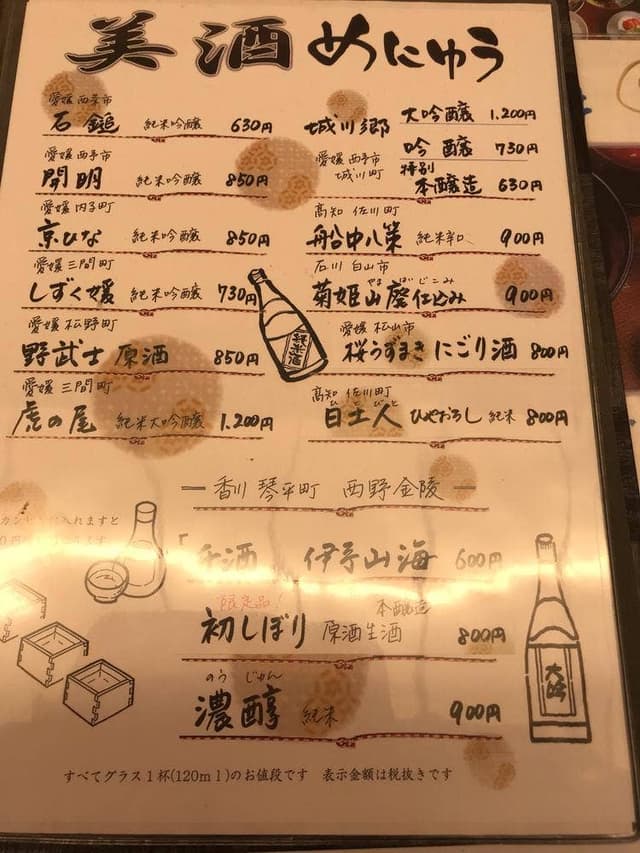 美酒めにゅう
愛媛 西条市
石鎚 純米吟醸 630円
愛媛 西予市
開明 純米吟醸 850円
愛媛 内子町
京ひな 純米吟醸 850円
愛媛 三間町
しずく媛 純米吟醸 730円
愛媛 松野町
野武士 原酒 850円
愛媛 三間町
虎の尾 純米大吟醸 1,200円
城川郷 大吟醸 1,200円
愛媛 西予市 城川町
吟醸 730円
特別本醸造 630円
高知 佐川町
船中八策 純米辛口 900円
石川 白山市
やまはいじこみ
菊姫山廃仕込み 900円
愛媛 松山市
桜うずまき にごり酒 800円
高知 佐川町
ひとびと
日土人 ひやおろし 純米 800円
香川 琴平町 西野金陵
入れますと
酒 伊予山海 600円
限定品!
初しぼり 原酒生酒 本醸造 800円
のうじゅん
濃醇 純米 900円
純米酒
大吟
すべてグラス1杯(120ml)のお値段です 表示金額は税抜きです